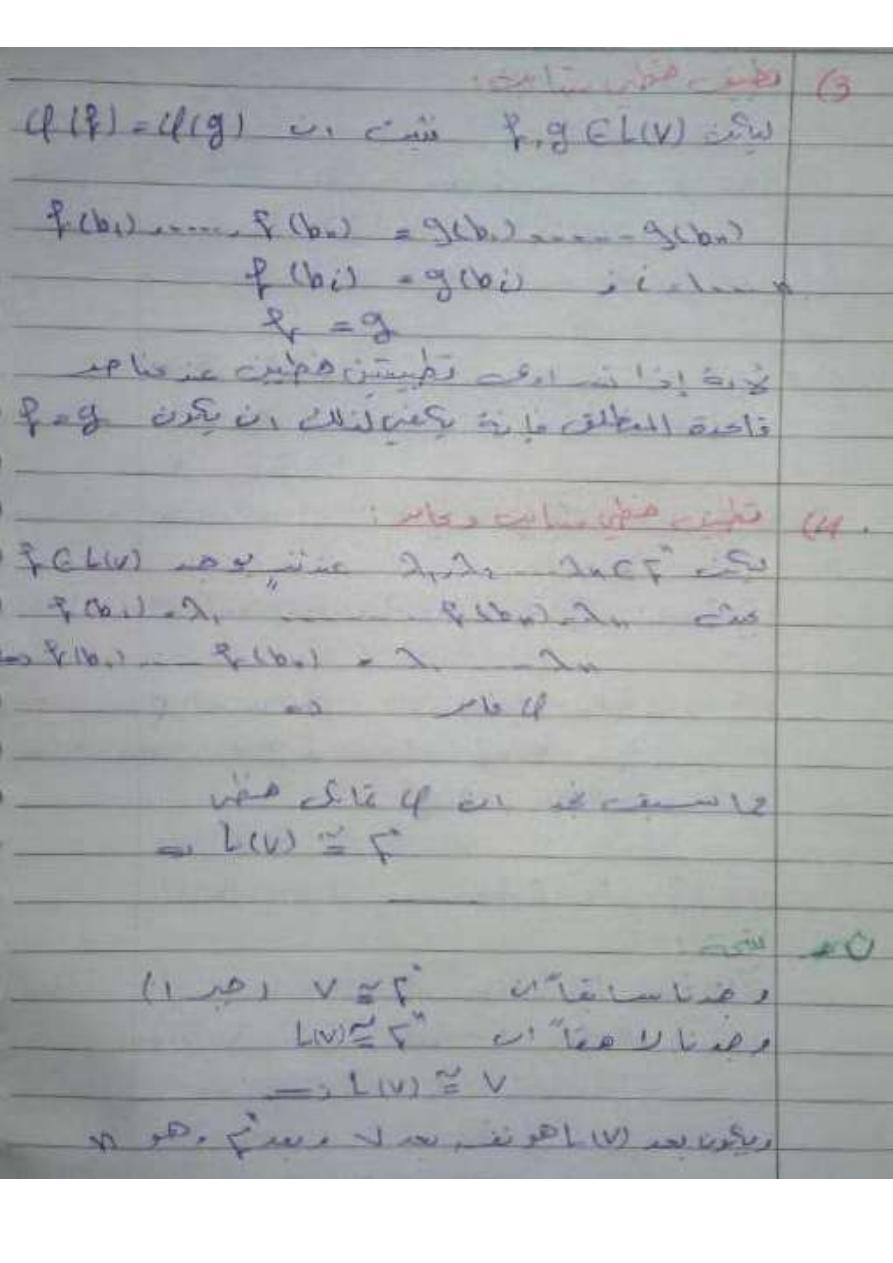 3) تطبيق خطي متباين:
ليكن f, g ∈ L(V) بحيث ان φ(f) = φ(g)
f(b₁) ...... f(bₙ) = g(b₁) ...... g(bₙ)
f(bᵢ) = g(bᵢ) ; i = 1 .... n
f = g
لأنه إذا تساوى تطبيقين خطيين عند عناصر
قاعدة المنطلق فإنه يكفي لذلك ان يكون f = g
4) تطبيق خطي وغامر:
ليكن λ₁, λ₂ .... λₙ ∈ Fⁿ عندئذٍ يوجد f ∈ L(V)
بحيث f(b₁) = λ₁ ........ f(bₙ) = λₙ
f(b₁) .... f(bₙ) = λ₁ .... λₙ ⇐
φ غامر ⇐
مما سبق نجد ان φ تماثل خطي
L(V) ≅ Fⁿ ⇐
نتيجة:
وجدنا سابقاً ان V ≅ Fⁿ (جبر 1)
وجدنا لاحقاً ان L(V) ≅ Fⁿ
⇐ L(V) ≅ V
ويكون بعد L(V) هو نفس بعد V وبعد Fⁿ وهو n